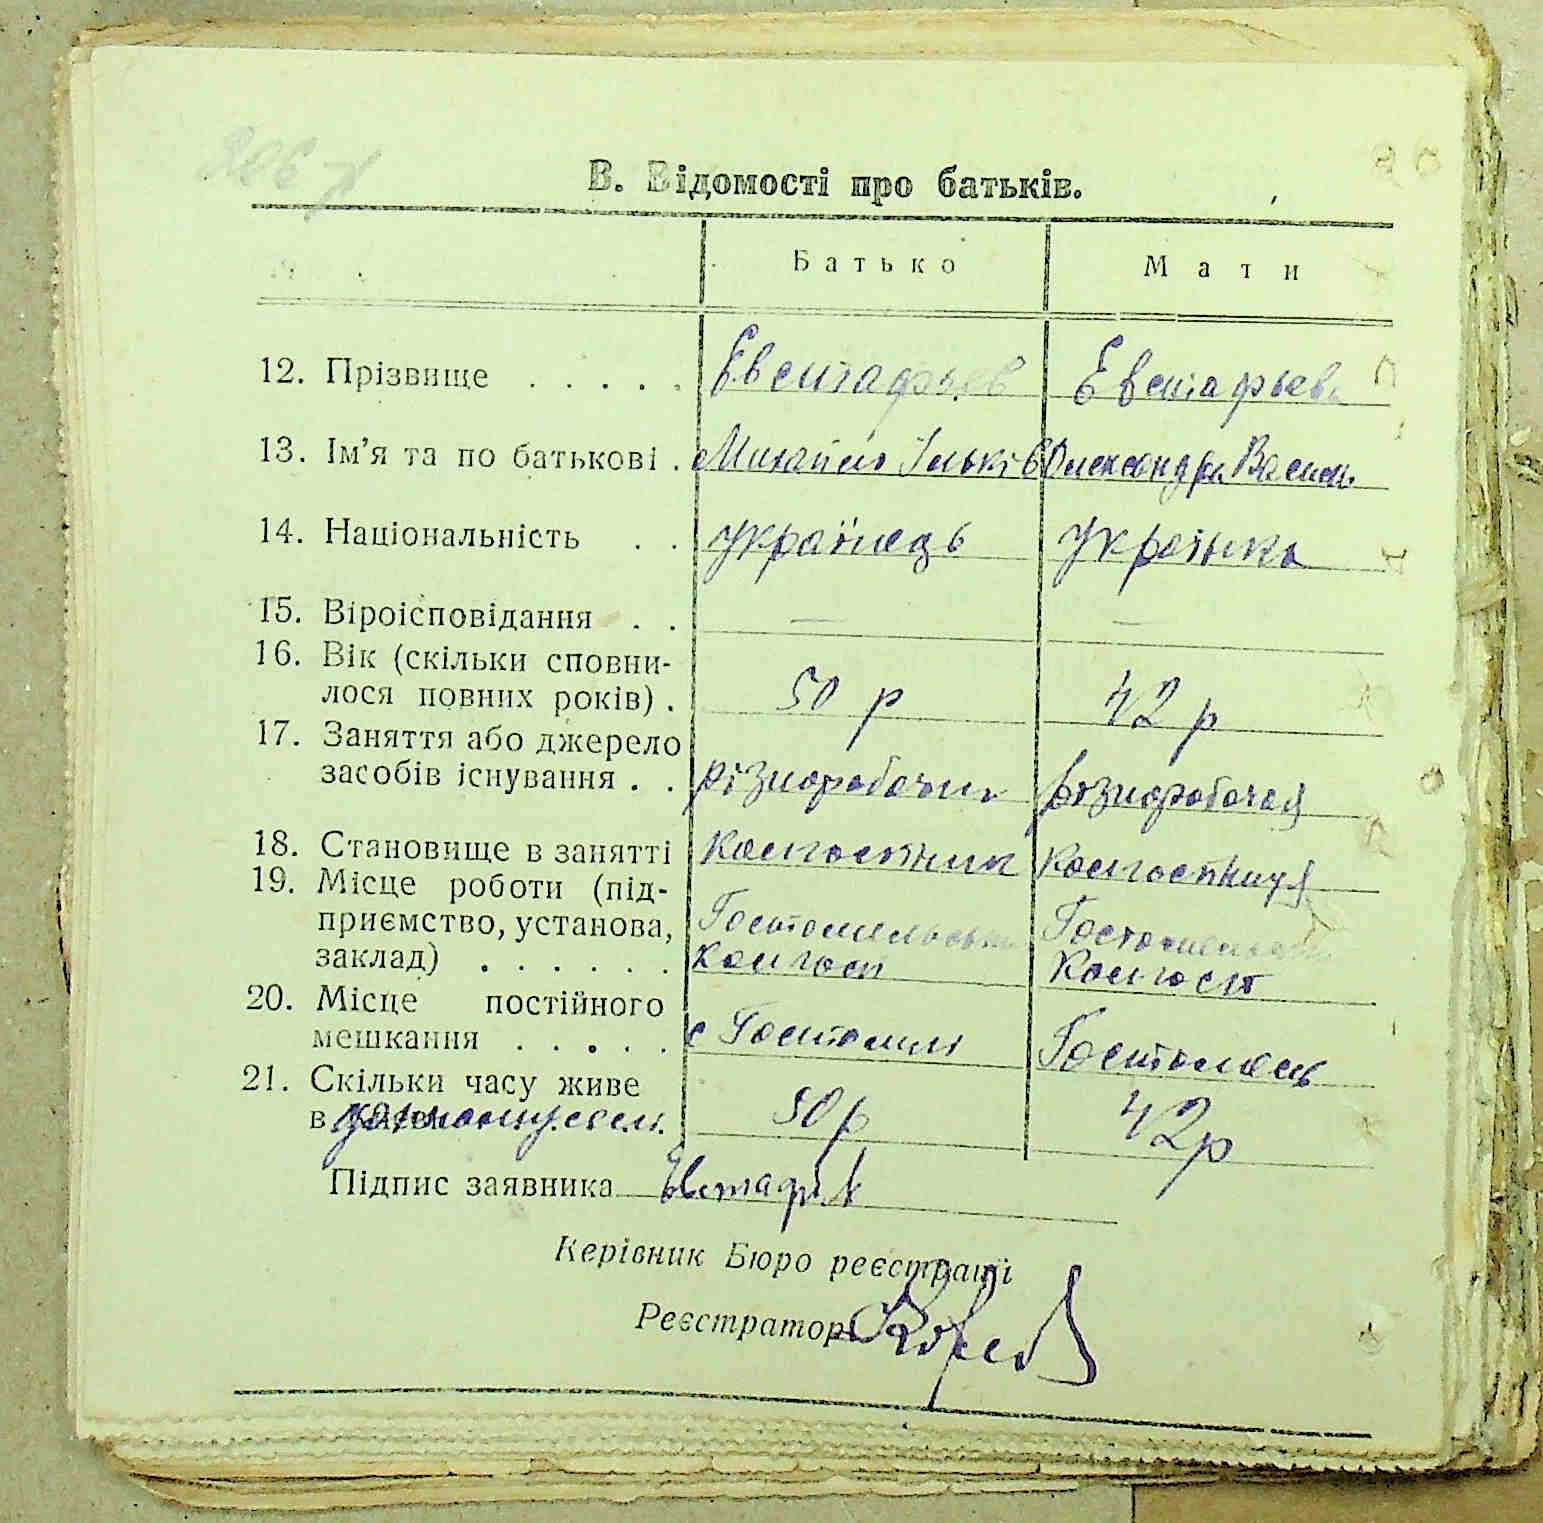 В. Відомості про батьків.
Батько Мати
12. Прізвище . . . . . Евстафьев Евстафьева
13. Ім'я та по батькові . Михайло Ільків Олександра Василь.
14. Національність . . українець українка
15. Віроісповідання . . — —
16. Вік (скільки сповни-
лося повних років) . 50 р 42 р
17. Заняття або джерело
засобів існування . . різноробочий різноробочая
18. Становище в занятті колгоспник колгоспниця
19. Місце роботи (під-
приємство, установа, Гостомельськ Гостомельськ
заклад) . . . . . . колгосп колгосп
20. Місце постійного
мешкання . . . . . с Гостомль Гостомель
21. Скільки часу живе
в даному селі. 50 р 42 р
Підпис заявника
Керівник Бюро реєстрації
Реєстратор